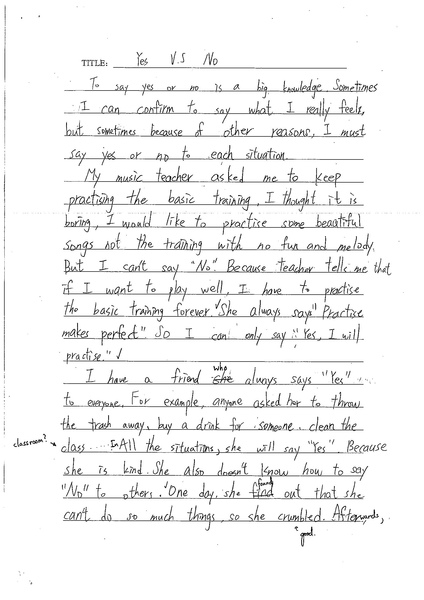 TITLE: Yes V.S No
To say yes or no is a big knowledge. Sometimes
I can confirm to say what I really feels,
but sometimes because of other reasons, I must
say yes or no to each situation.
My music teacher asked me to keep
practising the basic training, I thought it is
boring, I would like to practise some beautiful
songs not the training with no fun and melody.
But I can't say "No". Because teacher tells me that
if I want to play well, I have to practise
the basic training forever. She always says "Practise
makes perfect". So I can only say "Yes, I will
practise."
I have a friend she who always says "Yes"
to everyone. For example, anyone asked her to throw
the trash away, buy a drink for someone, clean the
classroom?
class... In All the situations, she will say "Yes". Because
she is kind. She also doesn't know how to say
"No" to others. One day, she find found out that she
can't do so much things, so she crumbled. Afterwards,
good.